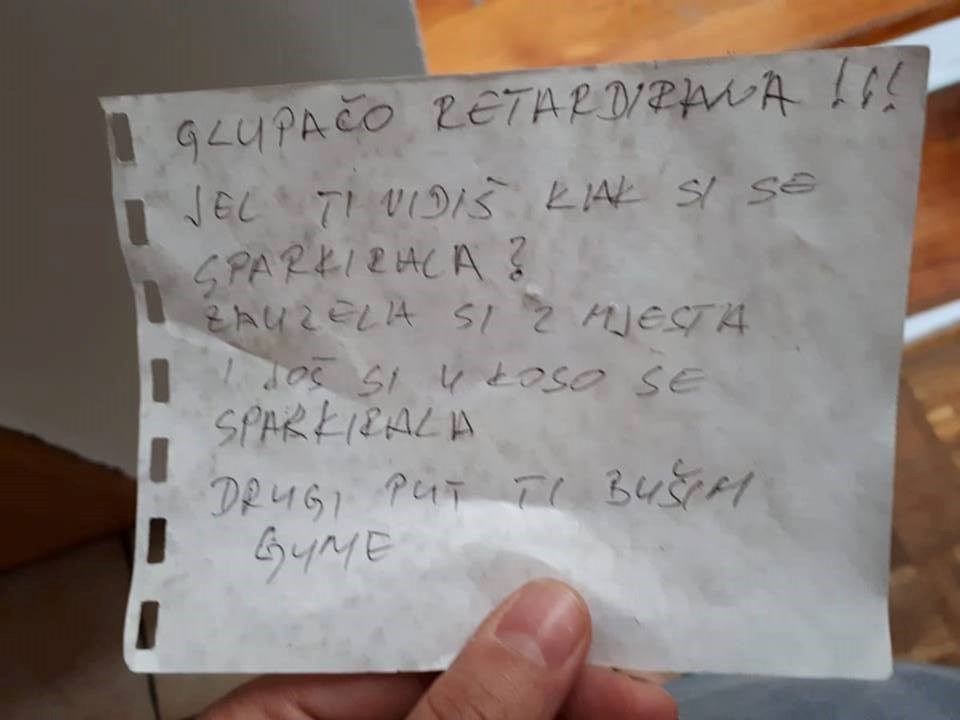 GLUPAČO RETARDIRANA !!!
JEL TI VIDIŠ KAK SI SE
SPARKIRALA?
ZAUZELA SI 2 MJESTA
I JOŠ SI U KOSO SE
SPARKIRALA
DRUGI PUT TI BUŠIM
GUME